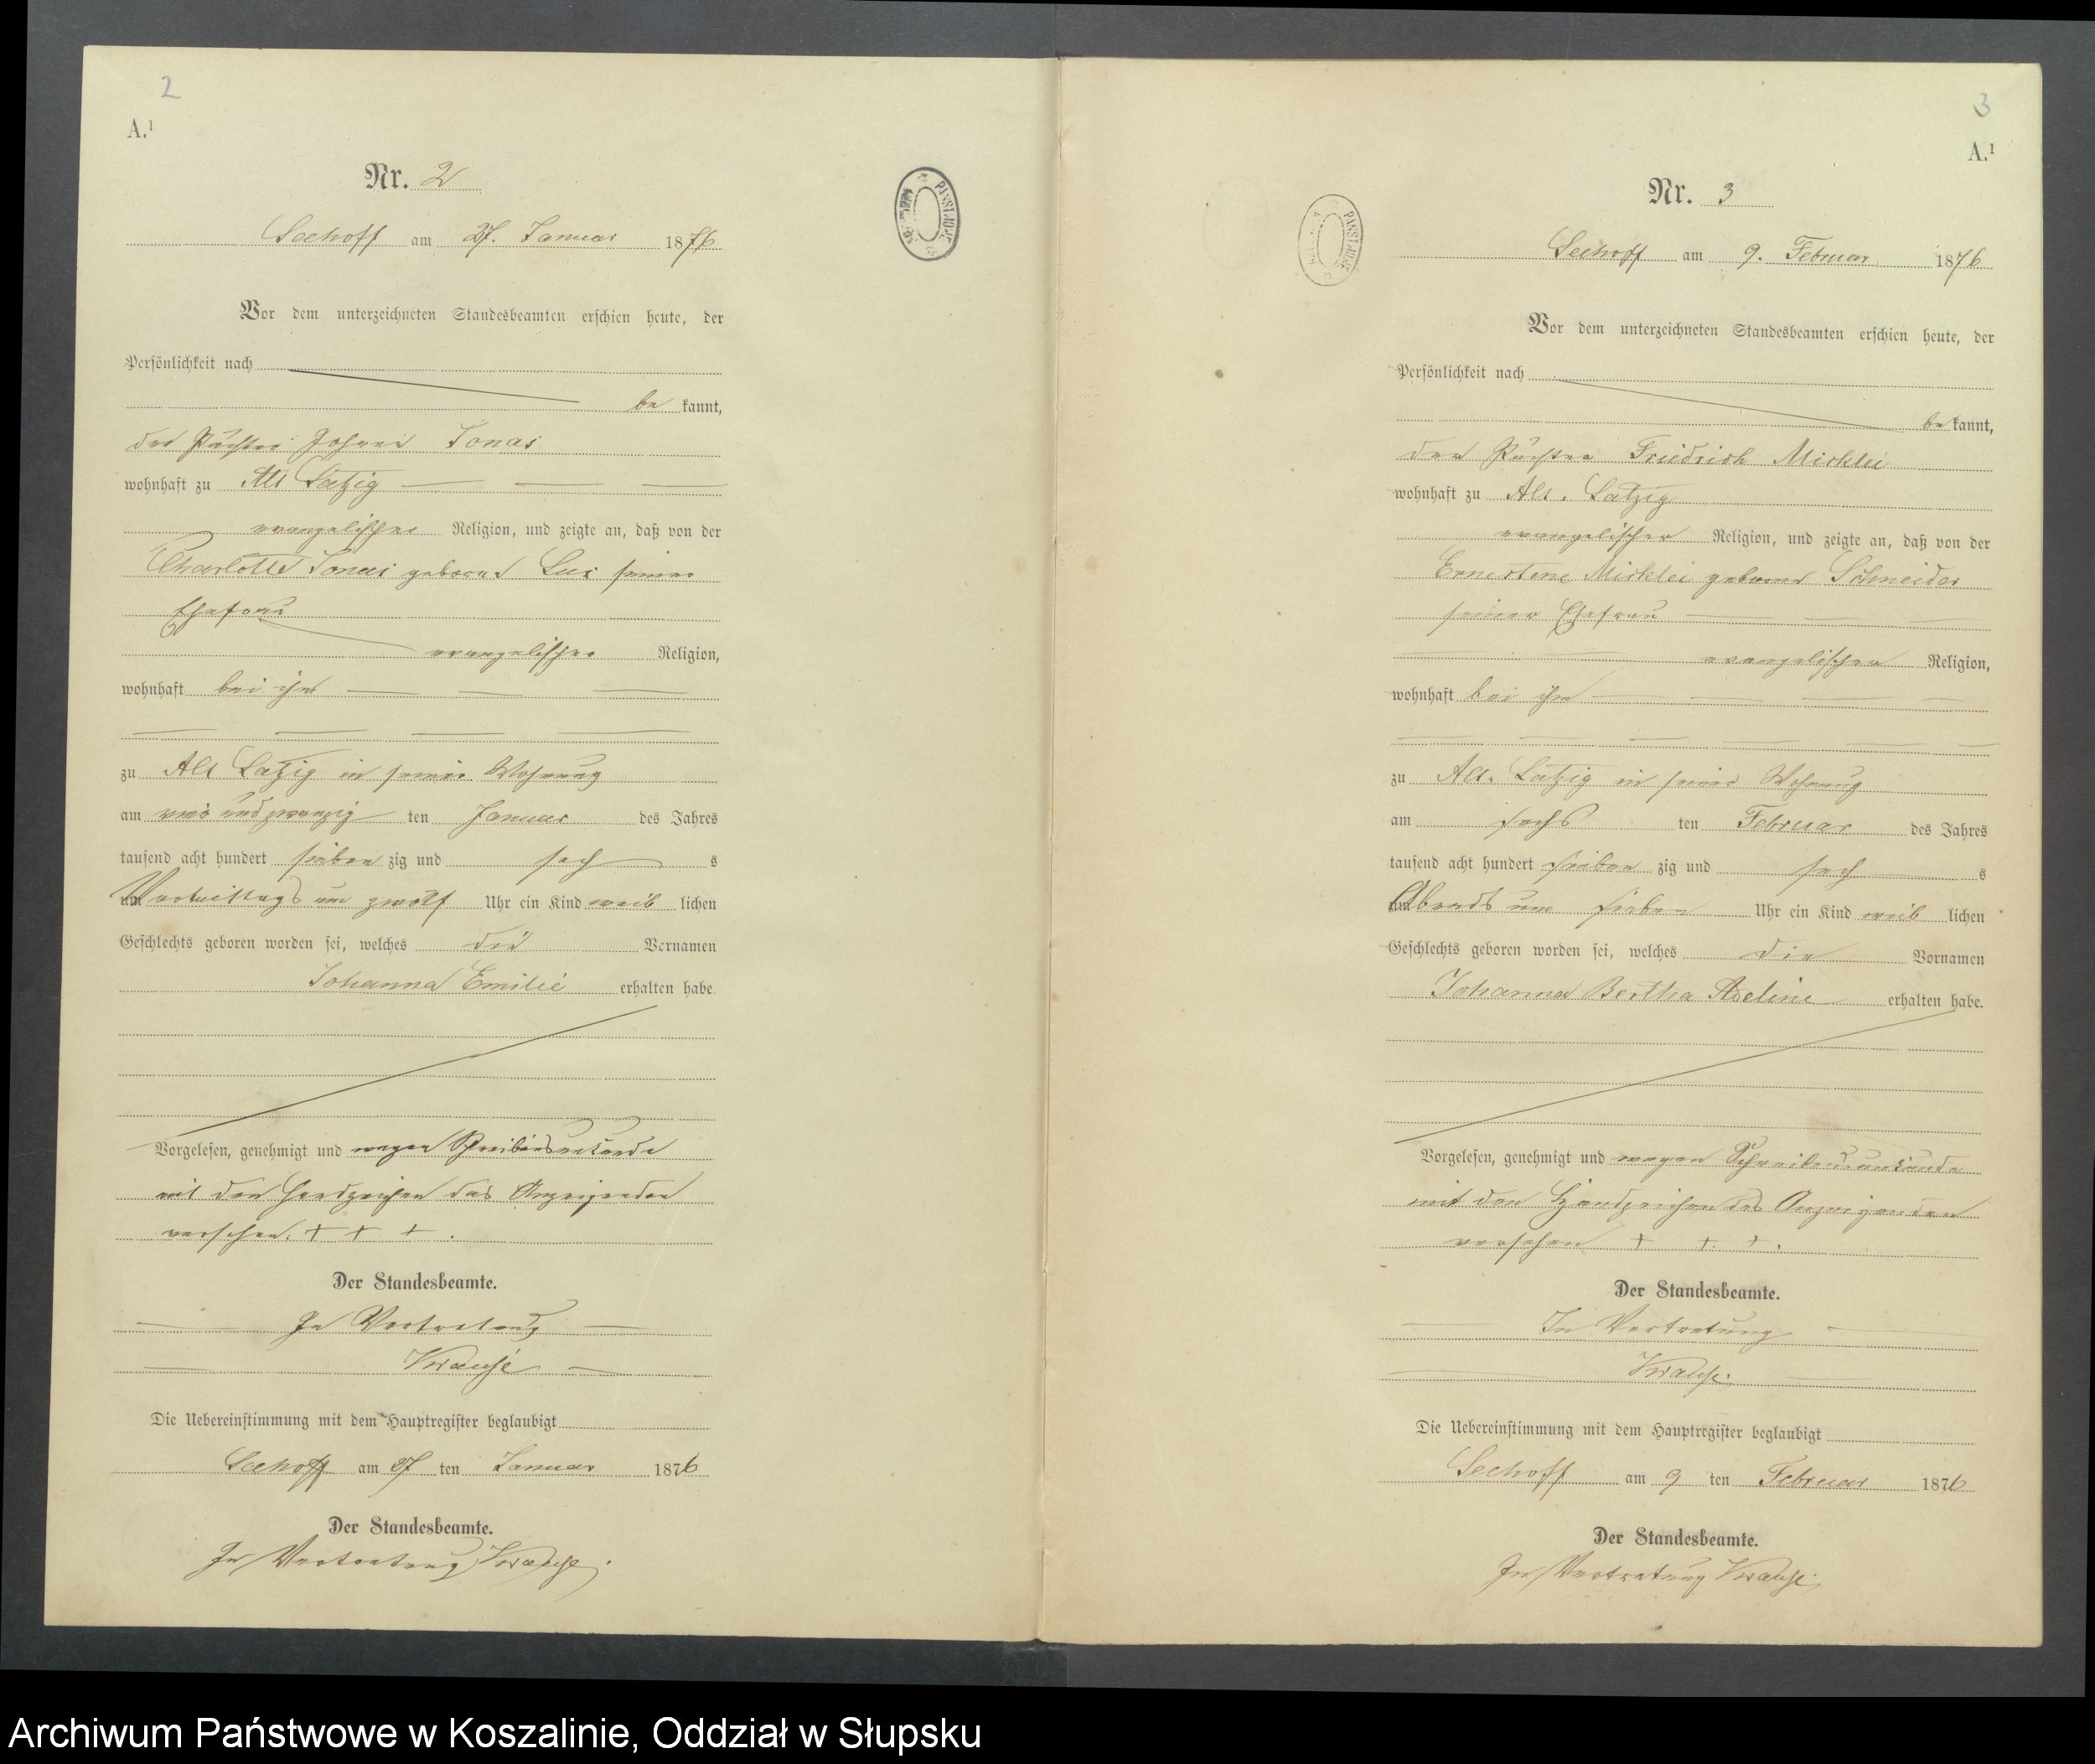 2
A.¹
Nr. 2
Seehoff am 27. Januar 1876
Vor dem unterzeichneten Standesbeamten erschien heute, der
Persönlichkeit nach
be kannt,
der Pächter Jonas
wohnhaft zu Alt Latzig
evangelischer Religion, und zeigte an, daß von der
Charlotte Jonas geborne seiner
Ehefrau
evangelischer Religion,
wohnhaft bei ihm
zu Alt Latzig in seiner Wohnung
am vier und zwanzig ten Januar des Jahres
tausend acht hundert sieben zig und sech s
Vormittags um zwölf Uhr ein Kind weib lichen
Geschlechts geboren worden sei, welches die Vornamen
Johanna Emilie erhalten habe.
Vorgelesen, genehmigt und wegen Schreibensunkunde
mit den Handzeichen des Anzeigenden
versehen. + + + .
Der Standesbeamte.
In Vertretung
Krause
Die Uebereinstimmung mit dem Hauptregister beglaubigt
Seehoff am 27 ten Januar 1876
Der Standesbeamte.
In Vertretung Krause.
PANSTWOWE
3
A.¹
Nr. 3
Seehoff am 9. Februar 1876
Vor dem unterzeichneten Standesbeamten erschien heute, der
Persönlichkeit nach
be kannt,
der Pächter Friedrich Mirklei
wohnhaft zu Alt. Latzig
evangelischer Religion, und zeigte an, daß von der
Ernestene Mirklei geborne Schneider
seiner Ehefrau
evangelischer Religion,
wohnhaft bei ihm
zu Alt. Latzig in seiner Wohnung
am sechs ten Februar des Jahres
tausend acht hundert sieben zig und sech s
Abends um sieben Uhr ein Kind weib lichen
Geschlechts geboren worden sei, welches die Vornamen
Johanna Bertha Adeline erhalten habe.
Vorgelesen, genehmigt und wegen Schreibensunkunde
mit den Handzeichen des Anzeigenden
versehen + + + .
Der Standesbeamte.
In Vertretung
Krause.
Die Uebereinstimmung mit dem Hauptregister beglaubigt
Seehoff am 9 ten Februar 1876
Der Standesbeamte.
In Vertretung Krause.
Archiwum Państwowe w Koszalinie, Oddział w Słupsku